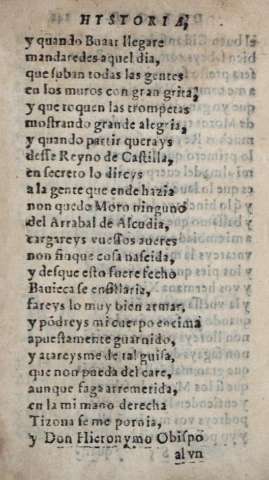 HYSTORIA,
y quando Bucar llegare
mandaredes aquel dia,
que suban todas las gentes
en los muros con gran grita,
y que toquen las trompetas
mostrando grande alegria,
y quando partir querays
desse Reyno de Castilla,
en secreto lo direys
a la gente que ende hazia
non quede Moro ninguno
del Arrabal de Alcudia,
cargareys vuessos aueres
non finque cosa nascida,
y desque esto fuere fecho
Bauieca se ensillaria,
fareys lo muy bien armar,
y põdreys mi cuerpo encima
apuestamente guarnido,
y atareysme de tal guisa,
que non pueda del caer,
aunque faga arremetida,
en la mi mano derecha
Tizona se me pornia,
y Don Hieronymo Obispo
al vn